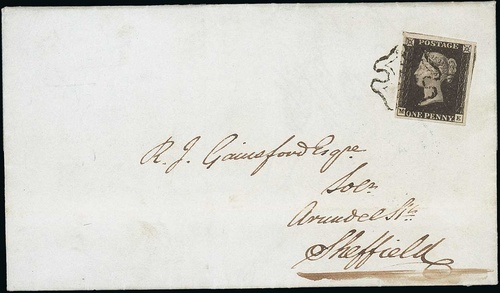 POSTAGE
M E
ONE PENNY
R. J. Gainsford Esqre
Solr
Arundel St.
Sheffield